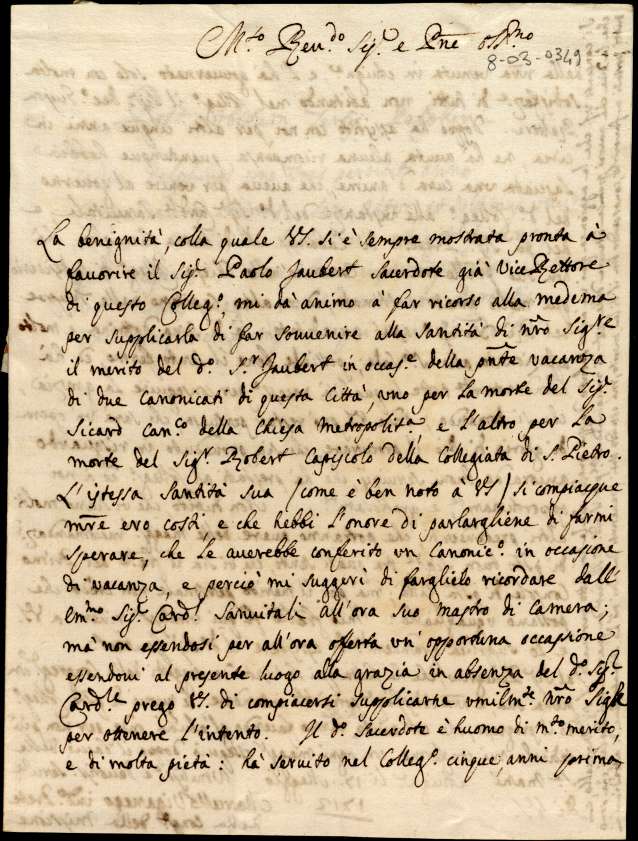 M.to Reu.do Sig.r e Pne oss.mo
8-03-0349
La benignità, colla quale VS. si è sempre mostrata pronta à
favorire il Sig.r Paolo Jaubert Sacerdote già ViceRettore
di questo Colleg.o, mi dà animo à far ricorso alla medema
per supplicarla di far souuenire alla Santità di nro Sig.re
il merito del d.o S.r Jaubert in occas.e della pnte vacanza
di due Canonicati di questa Città, uno per la morte del Sig.r
Sicard Can.co della Chiesa Metropolita, e l'altro per la
morte del Sig.r Robert Capiscolo della Collegiata di S. Pietro.
L'istessa Santità Sua (come è ben noto à VS) si compiacque
mtre ero costì, e che hebbi l'onore di parlargliene di farmi
sperare, che le auerebbe conferito vn Canonic.o in occasione
di vacanza, e perciò mi suggerì di farglielo ricordare dall'
em.mo Sig.r Card.l Sanuitali all'ora suo mastro di Camera;
mà non essendosi per all'ora offerta vn' opportuna occasione
essendoui al presente luogo alla grazia in absenza del d.o Sig.r
Card.le prego VS. di compiacersi supplicarne vmilm.te nro Sig.re
per ottenere l'intento. Il d.o Sacerdote è huomo di m.to merito,
e di molta pietà: hà seruito nel Colleg.o cinque anni prima